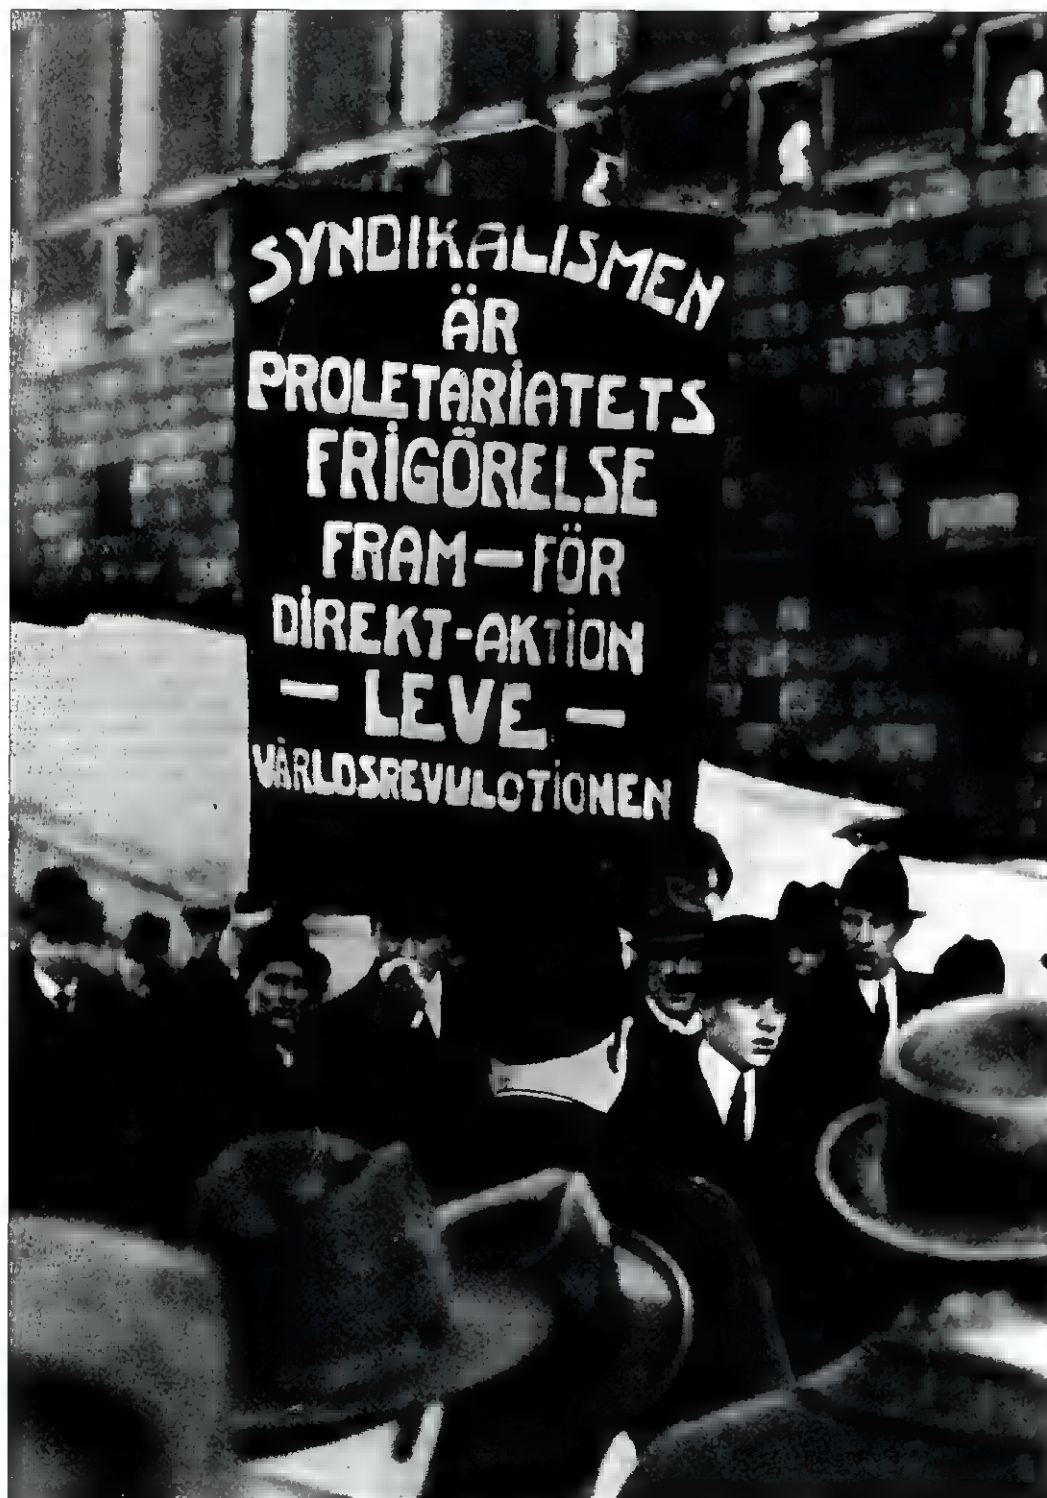 SYNDIKALISMEN
ÄR
PROLETARIATETS
FRIGÖRELSE
FRAM — FÖR
DIREKT-AKTION
— LEVE —
VÄRLDSREVULOTIONEN